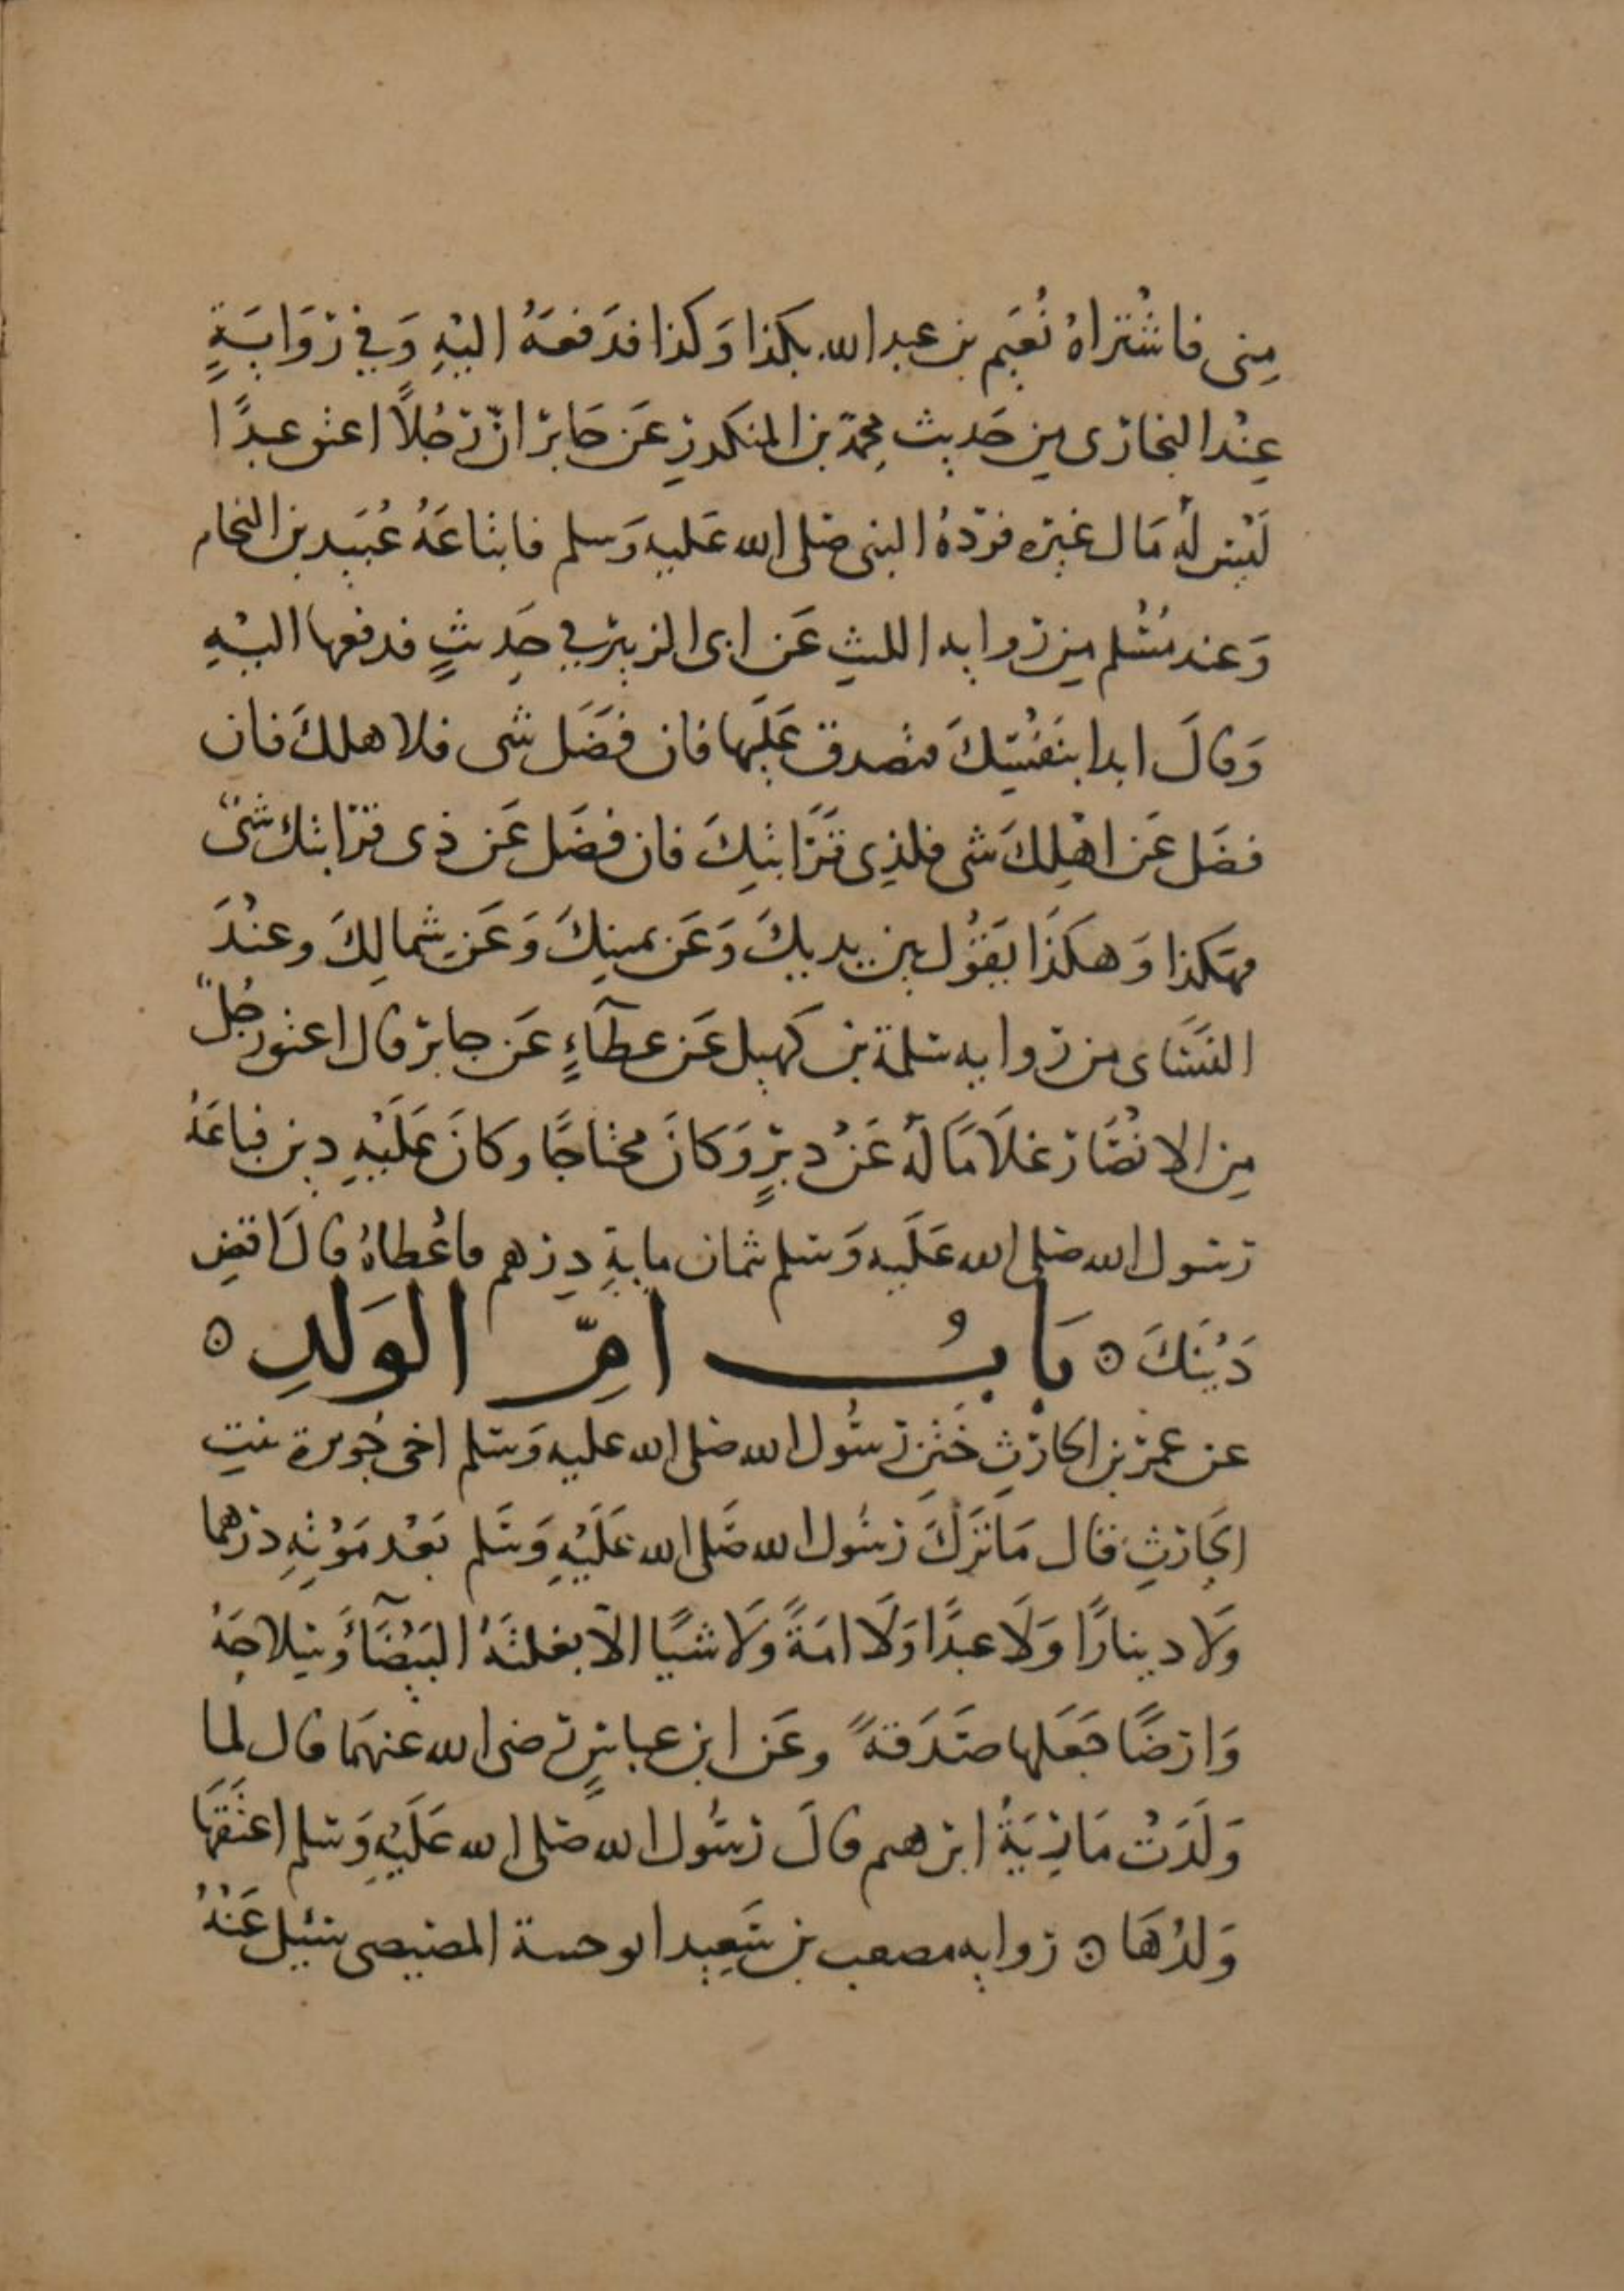 مِنى فاشْتراهُ نُعَيم بن عبد الله بكذا وَكذا فدَفعَهُ اليْهِ وَفي رِوَايَةٍ
عِنْد البخارى مِن حَديث محمد بن المنكدرِ عَن جَابرٍ انّ رَجُلاً اعتق عبدًا
لَيْسَ لَهُ مَال غيره فردّهُ النبى صلى الله عَليهِ وَسلم فابتاعَهُ عُبَيد بن النحام
وَعند مُسْلم مِن رواية الليثِ عَن ابى الزبير في حَدِيثٍ فدفعها اليْهِ
وَقالَ ابدا بنَفْسِكَ فتصدق عَليها فان فضَل شى فلاهلكَ فان
فضَل عَن اهْلِكَ شى فلذِى قَرَابتِكَ فان فضَل عَن ذى قرابتك شىٌ
فهكذا وَهكذَا يَقُول بين يديكَ وَعَن يمينِكَ وَعَن شِمالِكَ وعنْدَ
النسَاى من رواية سَلمة بن كهيل عَن عطآءٍ عَن جابر قال اعتق رجُلٌ
مِن الانْصَار غلَامًا لَهُ عَنْ دبرٍ وَكانَ محتاجًا وكانَ عَلَيْهِ دين فباعَهُ
رسول الله صلى الله عَلَيه وَسلم ثمان مايةِ دِرهم فاعْطاهُ قالَ اقضِ
دَيْنَكَ ه بَابُ امِّ الوَلدِ ه
عن عمرو بن الحارثِ خَتَنِ رسُول الله صلى الله عليه وَسلم اخى جُويرة بنتِ
الحَارثِ قال مَا ترَكَ رسُول الله صَلى الله عَلَيْهِ وَسَلم بَعْد مَوْتهِ درهما
وَلا دينارًا وَلَا عبدًا وَلَا امَةً وَلَا شيًا الاّ بغلتَهُ البَيْضَآءَ وَسِلاحَهُ
وَارضًا جَعَلها صَدَقةً وعَن ابن عباسٍ رضى الله عنهمَا قال لما
وَلَدَتْ مَارِيَةُ ابرهيم قالَ رسُول الله صلى الله عَلَيْهِ وَسلم اعتَقَهَا
وَلدُهَا ه رواية مصعب بن سَعِيد ابو خيثمة المصيصى سئيل عَنْهُ